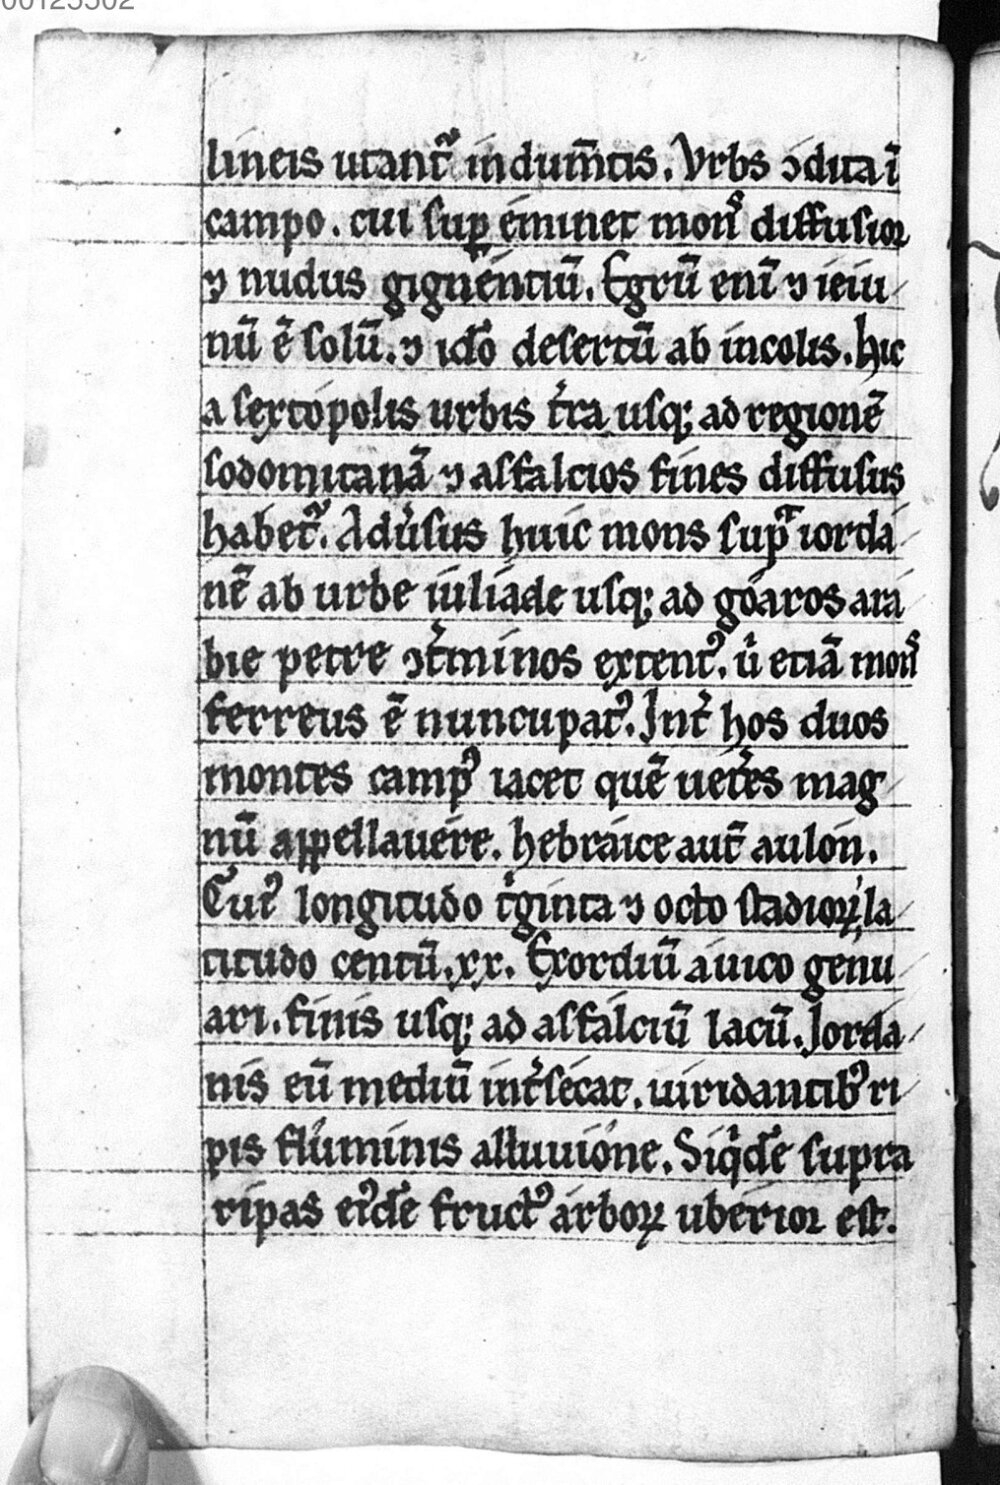 00125502
lineis utant᷑ indum̄tis. Vrbs ↄdita ī
campo. cui suꝑ eminet mons diffusior
⁊ nudus gignentiū. Egrū enī ⁊ ieiu
nū ē solū. ⁊ idō desertū ab incolis. hic
a sextopolis urbis t̄ra usq; ad regionē
sodomitanā ⁊ asfalcios fines diffusus
habet᷑. Adu̓sus huic mons supᷓ iorda
nē ab urbe iuliade usq; ad goaros ara
bie petre ↄt̓minos extent᷒. u̓ etiā mons
ferreus ē nuncupat᷒. Int̓ hos duos
montes camp᷒ iacet quē uet̓es mag
nū appellauere. hebraice aut̄ aulon.
Cui᷒ longitudo tⁱginta ⁊ octo stadioꝝ la
titudo centū. xx. Exordiū a uico genu
ari. finis usq; ad asfalciū lacū. Iorda
nis eū mediū int̓secat. uiridantib᷒ ri
pis fluminis alluuione. Siqⁱdē supra
ripas ei᷒dē fruct᷒ arboꝝ uberior est.